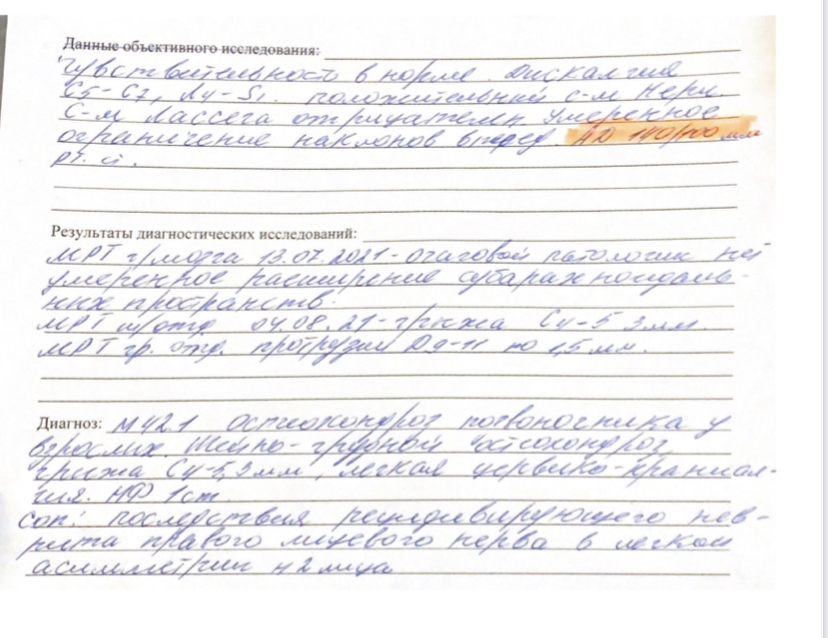 Данные объективного исследования:
Чувствительность в норме. Дискалгия
C5-C7, L4-S1. положительный с-м Нери
С-м Лассега отрицателен умеренное
ограничение наклонов вперед. АД 140/100 мм
рт. ст.
Результаты диагностических исследований:
МРТ г/мозга 13.07.2021 - очаговой патологии нет
умеренное расширение субарахноидаль-
ных пространств.
МРТ ш/отд 04.08.21 - грыжа C4-5 3мм.
МРТ гр. отд. протрузии D9-11 по 1,5 мм.
Диагноз: М42.1 Остеохондроз позвоночника у
взрослых. Шейно-грудной остеохондроз,
грыжа C4-5, 3мм, легкая цервико-краниал-
гия. НФ 1ст.
Соп: последствия рецидивирующего нев-
рита правого лицевого нерва в легкой
асимметрии лица